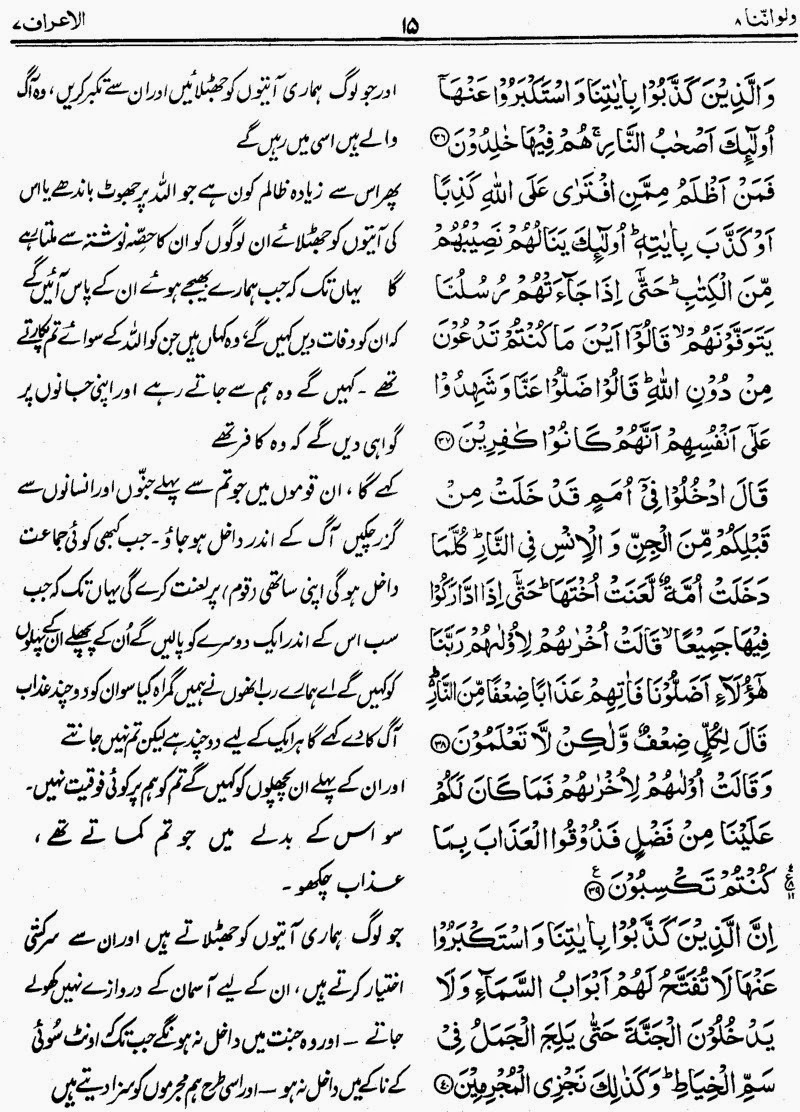 ولواننا ۸
۱۵
الاعراف ۷
وَالَّذِيْنَ كَذَّبُوْا بِاٰيٰتِنَا وَاسْتَكْبَرُوْا عَنْهَآ
اُولٰٓئِكَ اَصْحٰبُ النَّارِ ۚ هُمْ فِيْهَا خٰلِدُوْنَ ۳۶
فَمَنْ اَظْلَمُ مِمَّنِ افْتَرٰى عَلَى اللّٰهِ كَذِبًا
اَوْ كَذَّبَ بِاٰيٰتِهٖ ؕ اُولٰٓئِكَ يَنَالُهُمْ نَصِيْبُهُمْ
مِّنَ الْكِتٰبِ ؕ حَتّٰٓى اِذَا جَآءَتْهُمْ رُسُلُنَا
يَتَوَفَّوْنَهُمْ ۙ قَالُوْٓا اَيْنَ مَا كُنْتُمْ تَدْعُوْنَ
مِنْ دُوْنِ اللّٰهِ ؕ قَالُوْا ضَلُّوْا عَنَّا وَشَهِدُوْا
عَلٰٓى اَنْفُسِهِمْ اَنَّهُمْ كَانُوْا كٰفِرِيْنَ ۳۷
قَالَ ادْخُلُوْا فِيْٓ اُمَمٍ قَدْ خَلَتْ مِنْ
قَبْلِكُمْ مِّنَ الْجِنِّ وَ الْاِنْسِ فِي النَّارِ ؕ كُلَّمَا
دَخَلَتْ اُمَّةٌ لَّعَنَتْ اُخْتَهَا ؕ حَتّٰٓى اِذَا ادَّارَكُوْا
فِيْهَا جَمِيْعًا ۙ قَالَتْ اُخْرٰىهُمْ لِاُوْلٰىهُمْ رَبَّنَا
هٰٓؤُلَآءِ اَضَلُّوْنَا فَاٰتِهِمْ عَذَابًا ضِعْفًا مِّنَ النَّارِ ؕ
قَالَ لِكُلٍّ ضِعْفٌ وَّلٰكِنْ لَّا تَعْلَمُوْنَ ۳۸
وَقَالَتْ اُوْلٰىهُمْ لِاُخْرٰىهُمْ فَمَا كَانَ لَكُمْ
عَلَيْنَا مِنْ فَضْلٍ فَذُوْقُوا الْعَذَابَ بِمَا
كُنْتُمْ تَكْسِبُوْنَ ۳۹
اِنَّ الَّذِيْنَ كَذَّبُوْا بِاٰيٰتِنَا وَاسْتَكْبَرُوْا
عَنْهَا لَا تُفَتَّحُ لَهُمْ اَبْوَابُ السَّمَآءِ وَلَا
يَدْخُلُوْنَ الْجَنَّةَ حَتّٰى يَلِجَ الْجَمَلُ فِيْ
سَمِّ الْخِيَاطِ ؕ وَكَذٰلِكَ نَجْزِي الْمُجْرِمِيْنَ ۴۰
اور جو لوگ ہماری آیتوں کو جھٹلائیں اور ان سے تکبر کریں، وہ آگ
والے ہیں اسی میں رہیں گے
پھر اس سے زیادہ ظالم کون ہے جو اللہ پر جھوٹ باندھے یا اس
کی آیتوں کو جھٹلائے ان لوگوں کو ان کا حصّہ نوشتہ سے ملتا رہے
گا یہاں تک کہ جب ہمارے بھیجے ہوئے ان کے پاس آئیں گے
کہ ان کو وفات دیں کہیں گے، وہ کہاں ہیں جن کو اللہ کے سوائے تم پکارتے
تھے ۔ کہیں گے وہ ہم سے جاتے رہے اور اپنی جانوں پر
گواہی دیں گے کہ وہ کافر تھے
کہے گا، ان قوموں میں جو تم سے پہلے جنّوں اور انسانوں سے
گزر چکیں آگ کے اندر داخل ہو جاؤ ۔ جب کبھی کوئی جماعت
داخل ہو گی اپنی ساتھی (قوم) پر لعنت کرے گی یہاں تک کہ جب
سب اس کے اندر ایک دوسرے کو پالیں گے اُن کے پچھلے ان کے پہلوں
کو کہیں گے اے ہمارے رب انھوں نے ہمیں گمراہ کیا سو ان کو دو چند عذاب
آگ کا دے کہے گا ہر ایک کے لیے دو چند ہے لیکن تم نہیں جانتے
اور ان کے پہلے ان پچھلوں کو کہیں گے تم کو ہم پر کوئی فوقیت نہیں۔
سو اس کے بدلے میں جو تم کماتے تھے،
عذاب چکھو ۔
جو لوگ ہماری آیتوں کو جھٹلاتے ہیں اور ان سے سرکشی
اختیار کرتے ہیں، ان کے لیے آسمان کے دروازے نہیں کھولے
جاتے – اور وہ جنت میں داخل نہ ہونگے جب تک اونٹ سُوئی
کے ناکے میں داخل نہ ہو – اور اسی طرح ہم مجرموں کو سزا دیتے ہیں